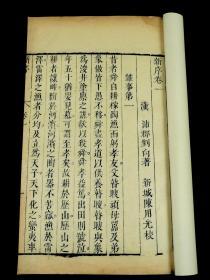 新序卷一
漢 沛郡劉向著 新城陳用光校
雜事第一
昔者舜自耕稼陶漁而躬孝友父瞽瞍頑母嚚及弟
象傲皆下愚不移舜盡孝道以供養瞽瞍瞽瞍與象
為浚井塗廩之謀欲以殺舜舜孝益篤出田則號泣
年五十猶嬰兒慕可謂至孝矣故耕於歷山歷山之
耕者讓畔陶於河濱河濱之陶者器不苦窳漁於雷
澤雷澤之漁者分均及立為天子天下化之蠻夷率